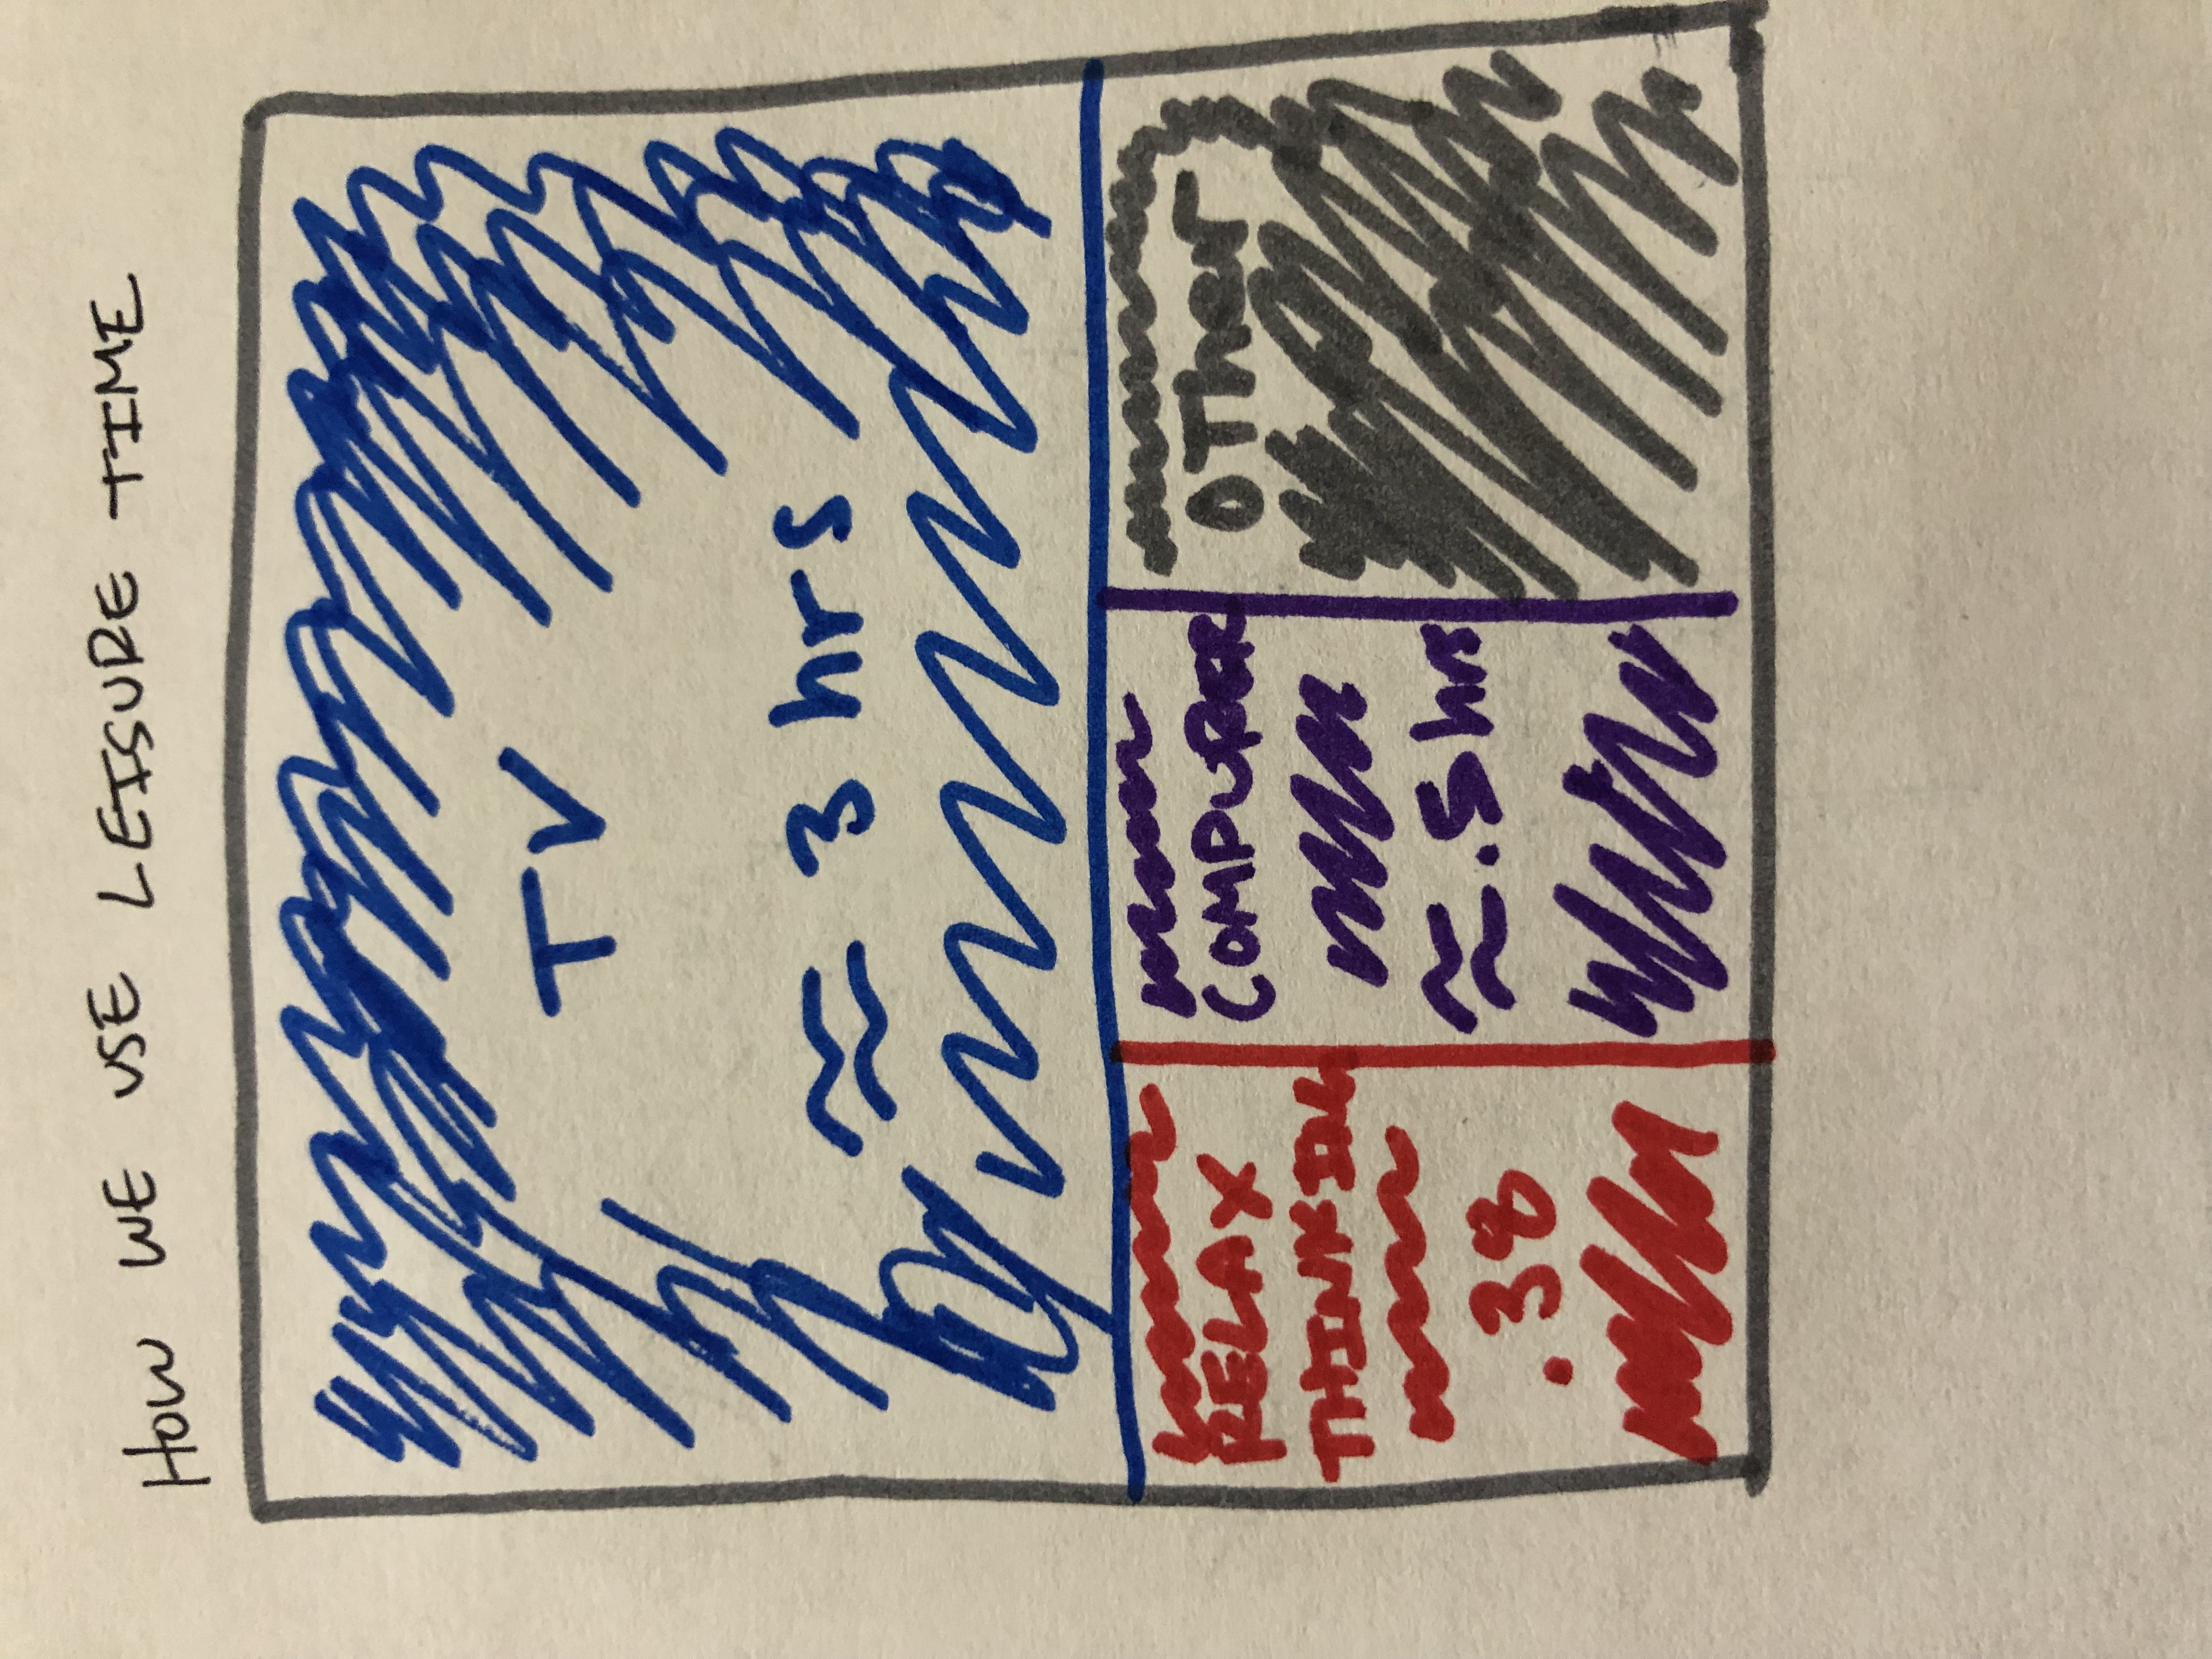 HOW WE USE LEISURE TIME
TV
≈ 3 hrs
RELAX
THINKING
.38
COMPURER
≈ .5 hrs
OTher